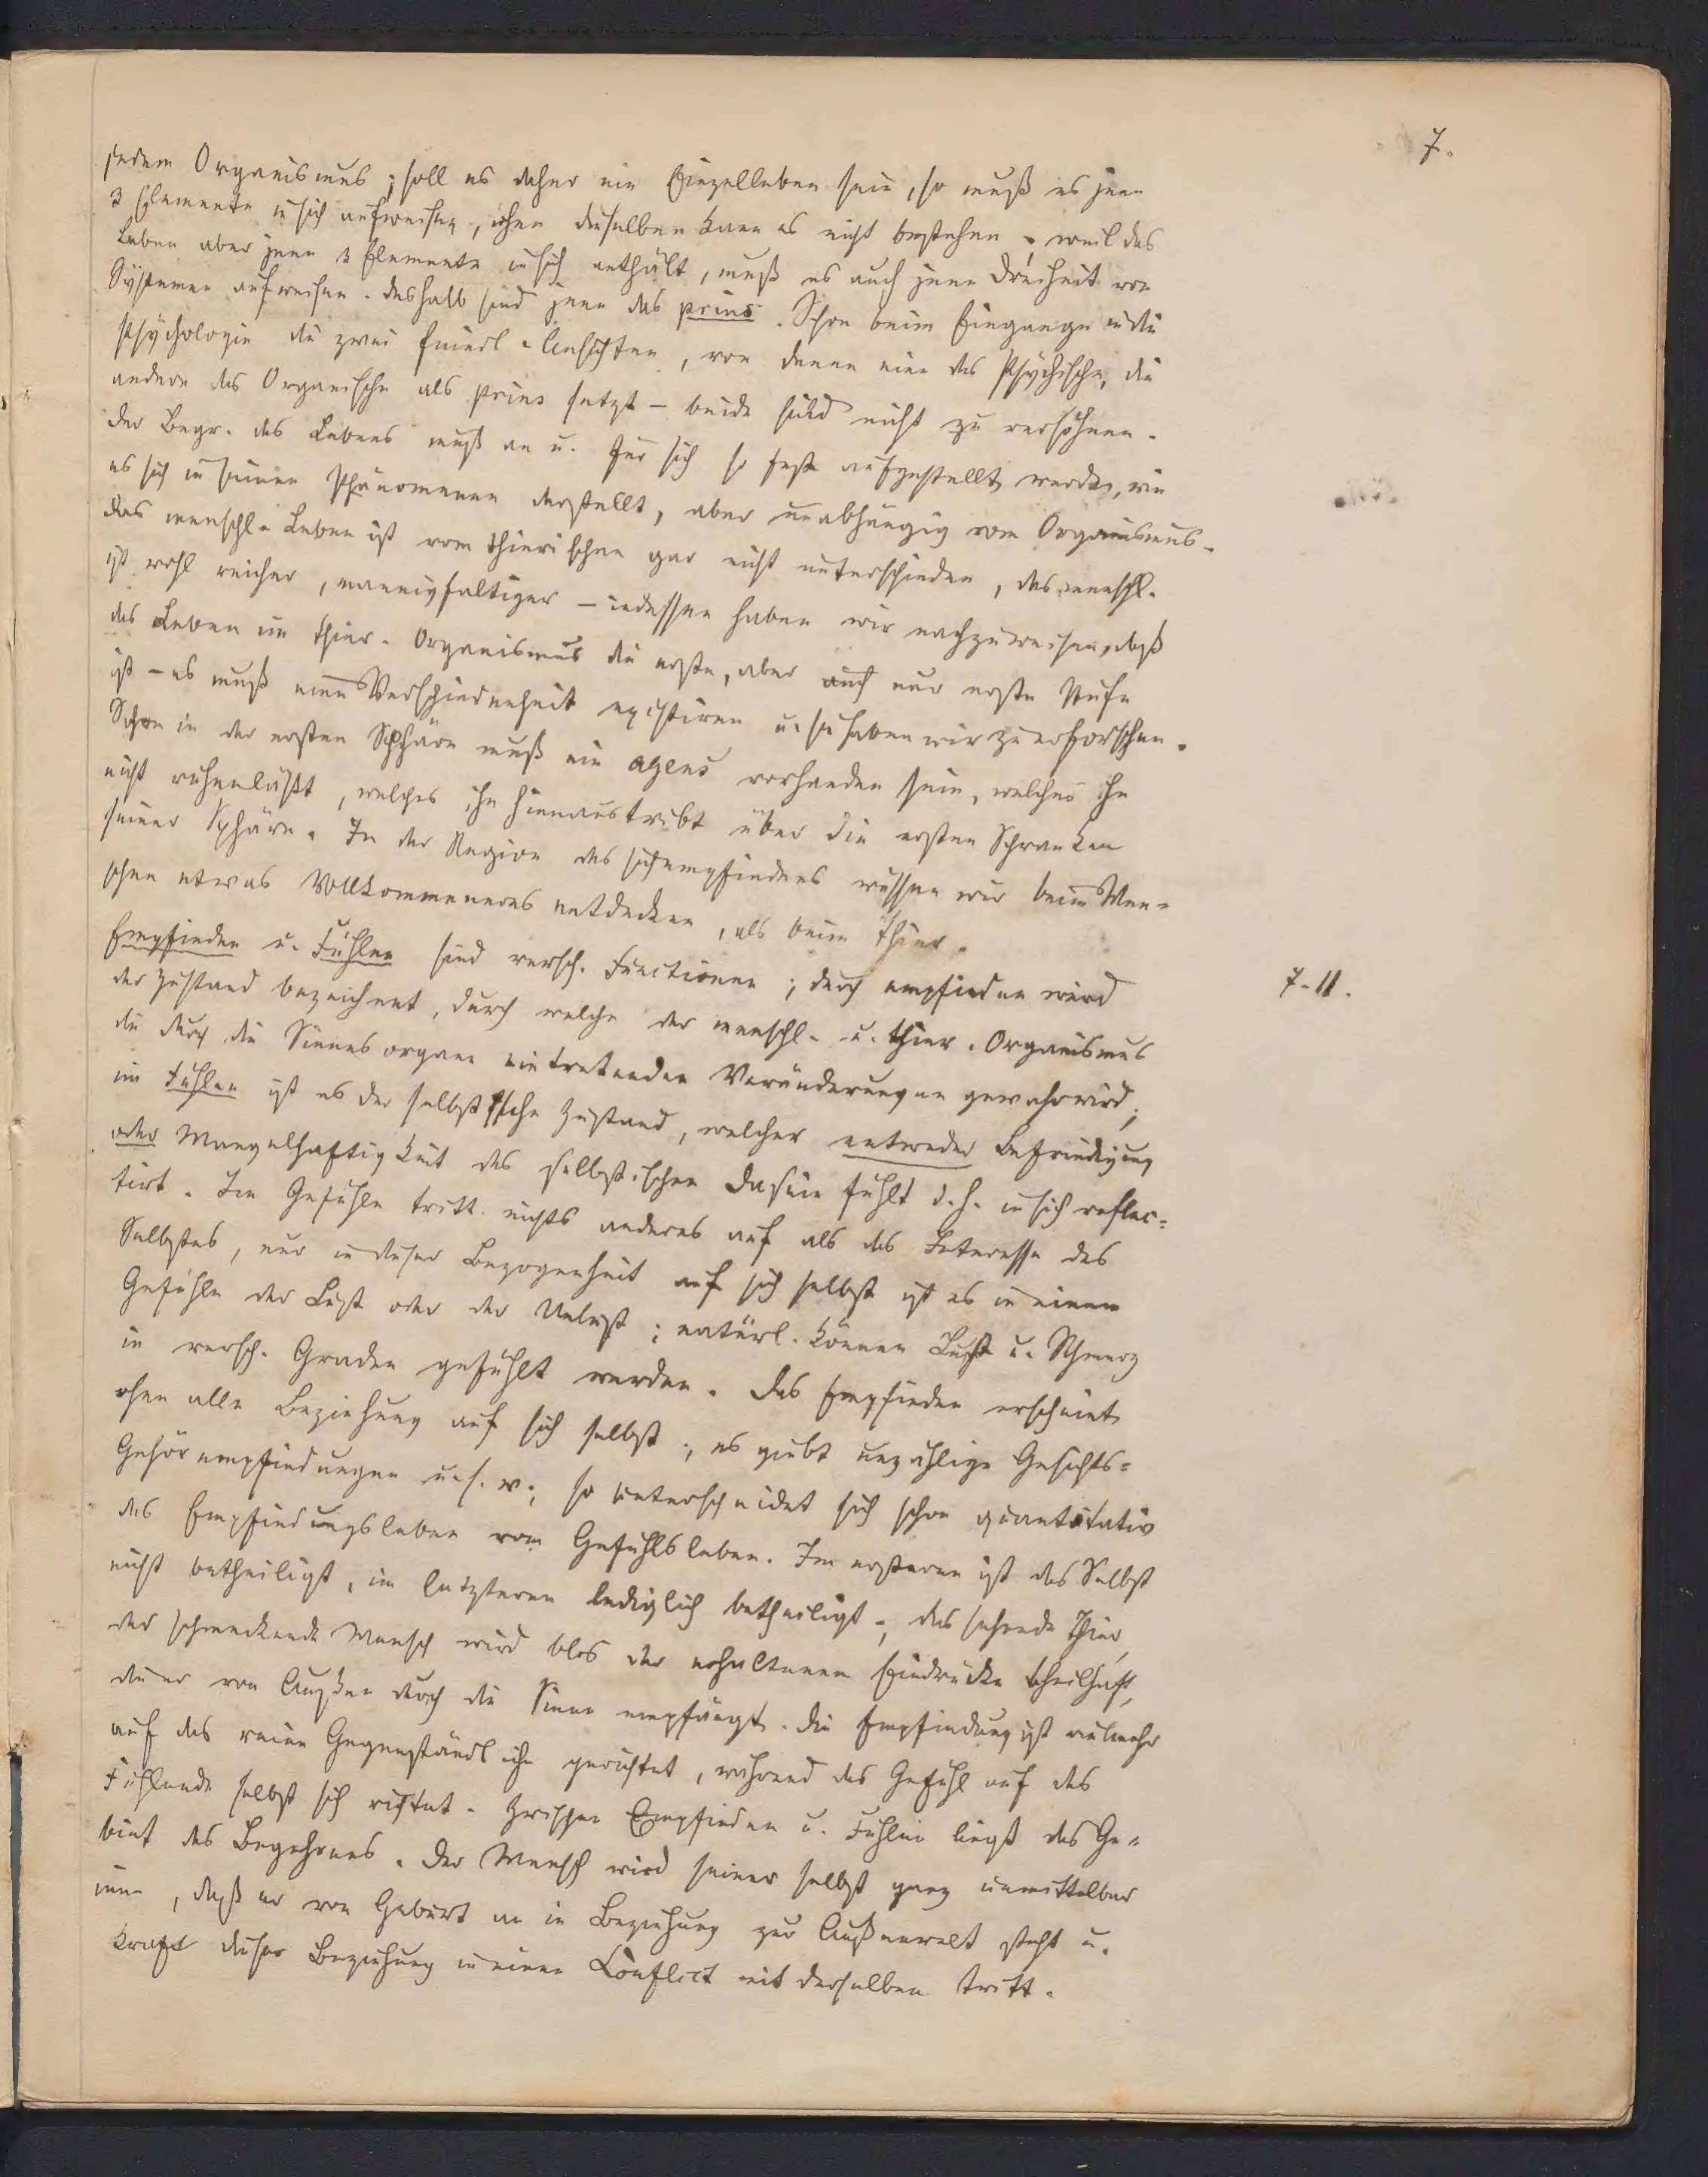 7.
jedem Organismus; soll es daher ein Einzelleben sein, so muß es jene
3 Elemente in sich aufweisen, ohne dieselben kann es nicht bestehen. weil das
Leben aber jene 3 Elemente in sich enthält, muß es auch jene Dreiheit von
Systemen aufweisen. deshalb sind jene das prius. Schon beim Eingange in die
Psychologie die zwei feindl. Ansichten, von denen eine das Psychische, die
andere das Organische als prius setzt – beide sind nicht zu versöhnen.
der Begr. des Lebens muß an u. für sich so fest aufgestellt werden, wie
es sich in seinen Phänomenen darstellt, aber unabhängig vom Organismus.
das menschl. Leben ist vom thierischen gar nicht unterschieden, das menschl.
ist wohl reicher, mannigfaltiger – indessen haben wir nachzuweisen, daß
das Leben im thier. Organismus die erste, aber auch nur erste Stufe
ist – es muß eine Verschiedenheit existiren u. sie haben wir zu erforschen.
Schon in der ersten Sphäre muß ein agens vorhanden sein, welches ihn
nicht ruhen läßt, welches ihn hinaustreibt über die ersten Schranken
seiner Sphäre. In der Region des sichempfindens müssen wir beim Men-
schen etwas Vollkommeneres entdecken, als beim Thier.
Empfinden u. Fühlen sind versch. Functionen; durch empfinden wird
7-11.
der Zustand bezeichnet, durch welche der menschl. u. thier. Organismus
die durch die Sinnesorgane eintretenden Veränderungen gewahr wird;
im Fühlen ist es der selbstische Zustand, welcher entweder Befriedigung
oder Mangelhaftigkeit des selbstischen Dasein fühlt d. h. in sich reflec-
tirt. Im Gefühle tritt nichts anderes auf als das Interesse des
Selbstes, nur in dieser Bezogenheit auf sich selbst ist es in einem
Gefühle der Lust oder der Unlust; natürl. können Lust u. Schmerz
in versch. Graden gefühlt werden. Das Empfinden erscheint
ohne alle Beziehung auf sich selbst; es giebt unzählige Gesichts-
Gehörempfindungen u. s. w.; so unterscheidet sich schon quantitativ
das Empfindungsleben vom Gefühlsleben. Im ersteren ist das Selbst
nicht betheiligt, im letzteren lediglich betheiligt; das sehende Thier,
der schmeckende Mensch wird blos der erhaltenen Eindrücke theilhaft,
die er von Außen durch die Sinne empfängt. Die Empfindung ist vielmehr
auf das reine Gegenständliche gerichtet, während das Gefühl auf das
Fühlende selbst sich richtet. Zwischen Empfinden u. Fühlen liegt das Ge-
biet des Begehrens. Der Mensch wird seiner selbst ganz unmittelbar
inne, daß er von Geburt an in Beziehung zur Außenwelt steht u.
kraft dieser Beziehung in einen Conflict mit derselben tritt.